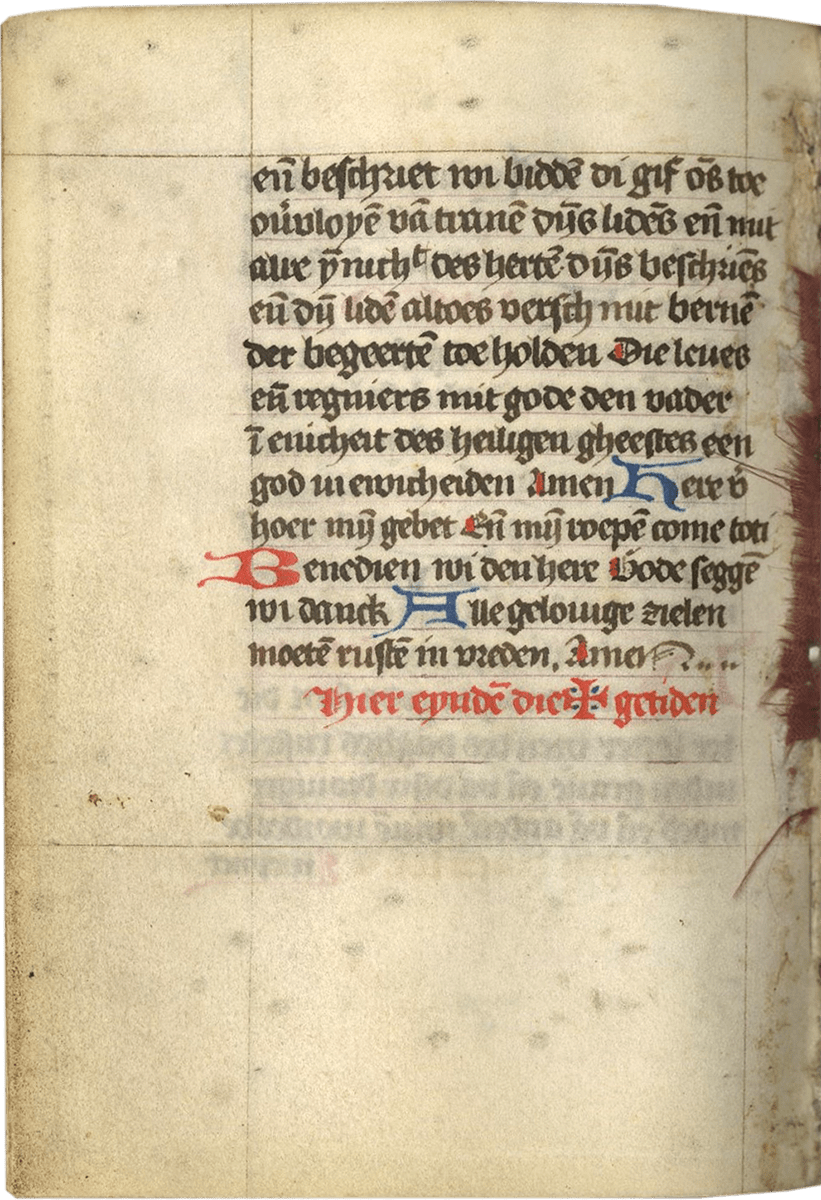 en̄ beschriet wi biddē di gif ōs toe
ou̾vloyē vā tranē dijs lidēs en̄ mit
alre ynich^t des hertē dijs beschriēs
en̄ dij̄ lidē altoes versch mit bernē
der begeertē toe holden Die leues
en̄ regniers mit gode den vader
ī euicheit des heiligen gheestes een
god in ewicheiden Amen Here v̾
hoer mij̄ gebet En̄ mij̄ roepē come toti
Benedien wi den here Gode seggē
wi danck Alle gelouige zielen
moetē rustē in vreden. Amen
Hier eyndē die ✠ getiden